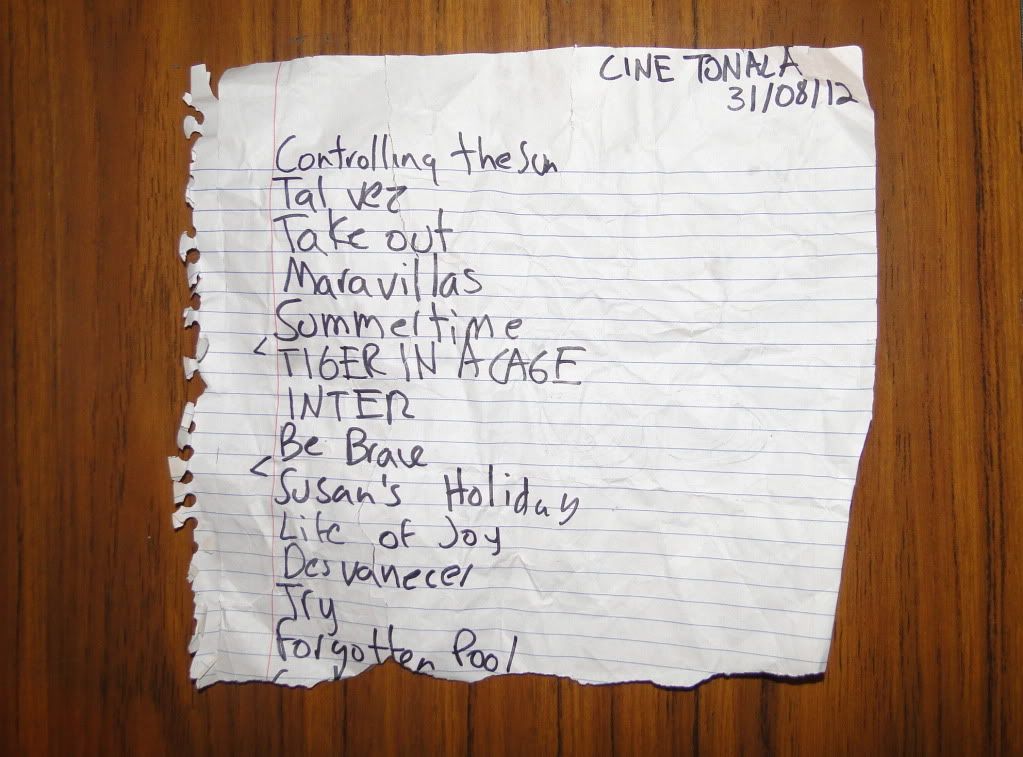 CINE TONALA
31/08/12
Controlling the Sun
Tal vez
Take out
Maravillas
Summertime
< TIGER IN A CAGE
INTER
Be Brave
< Susan's Holiday
Life of Joy
Desvanecer
Try
Forgotten Pool